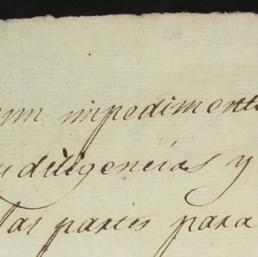 impedimento
diligencias y
las partes para